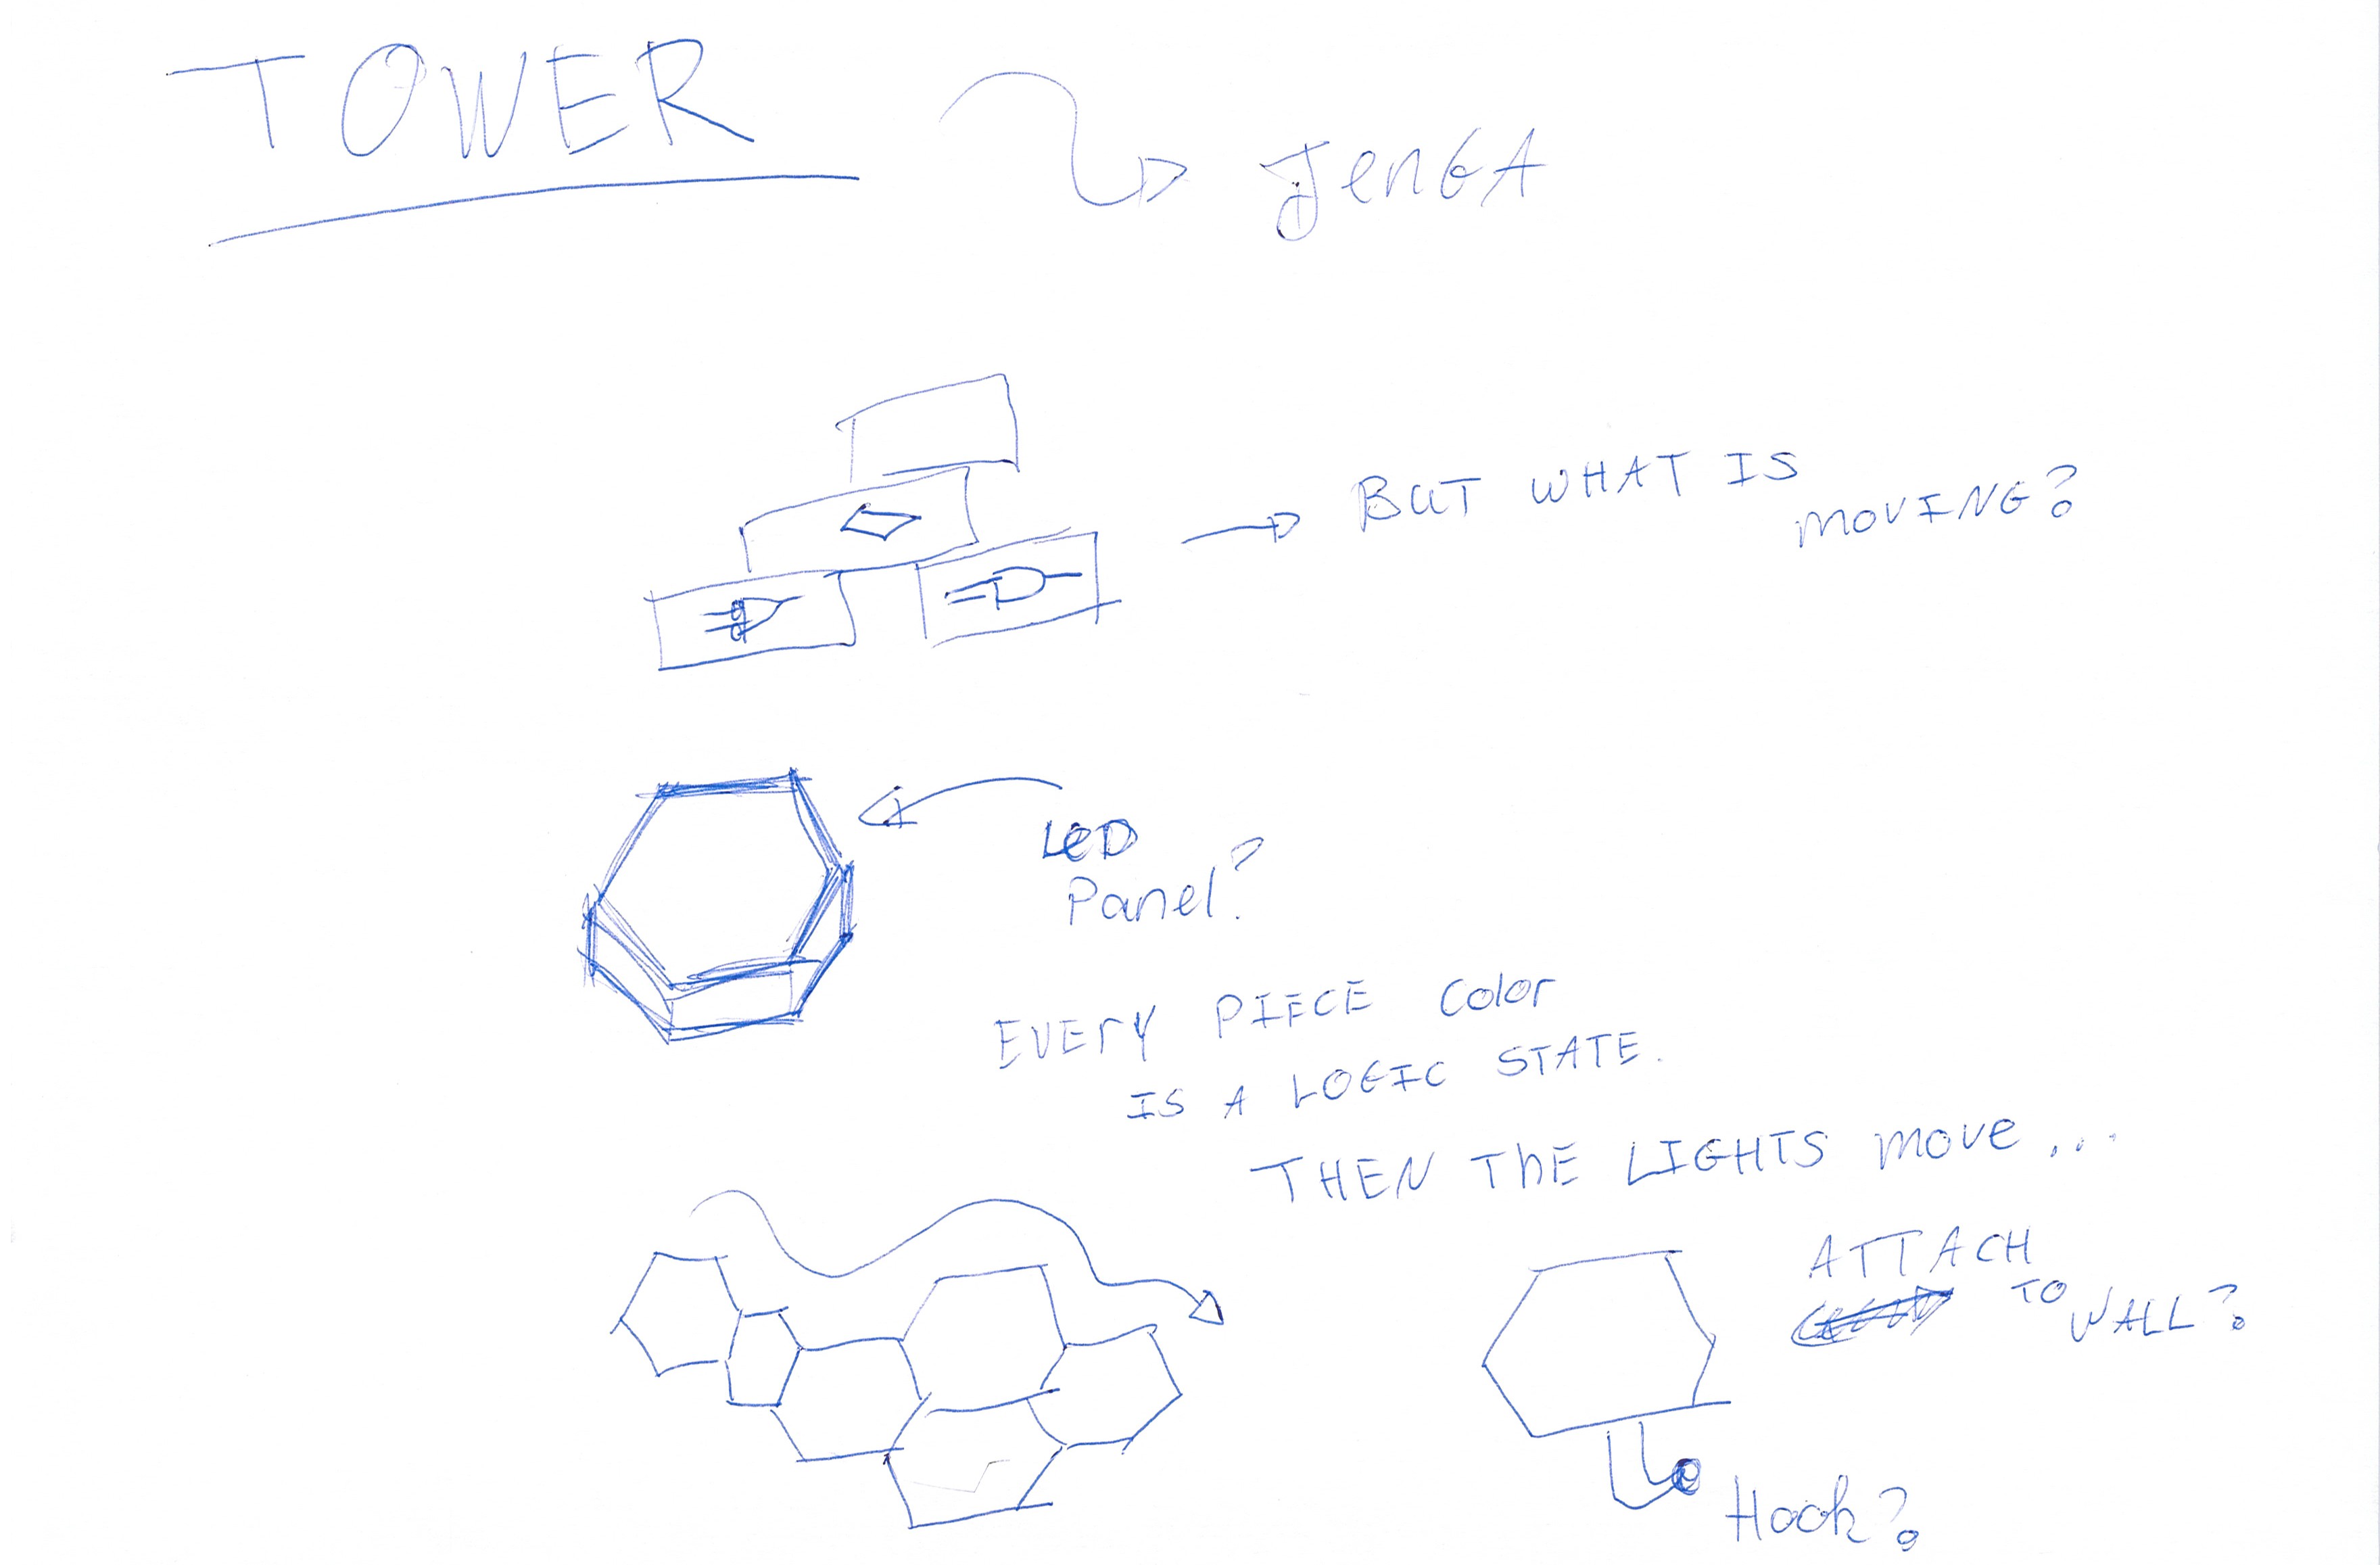 TOWER
JenGA
BUT WHAT IS
MOVING?
LeD
Panel?
EVErY PIECE Color
IS A LOGIC STATE.
THEN ThE LIGHTS move...
ATTACH
TO WALL?
Hook?